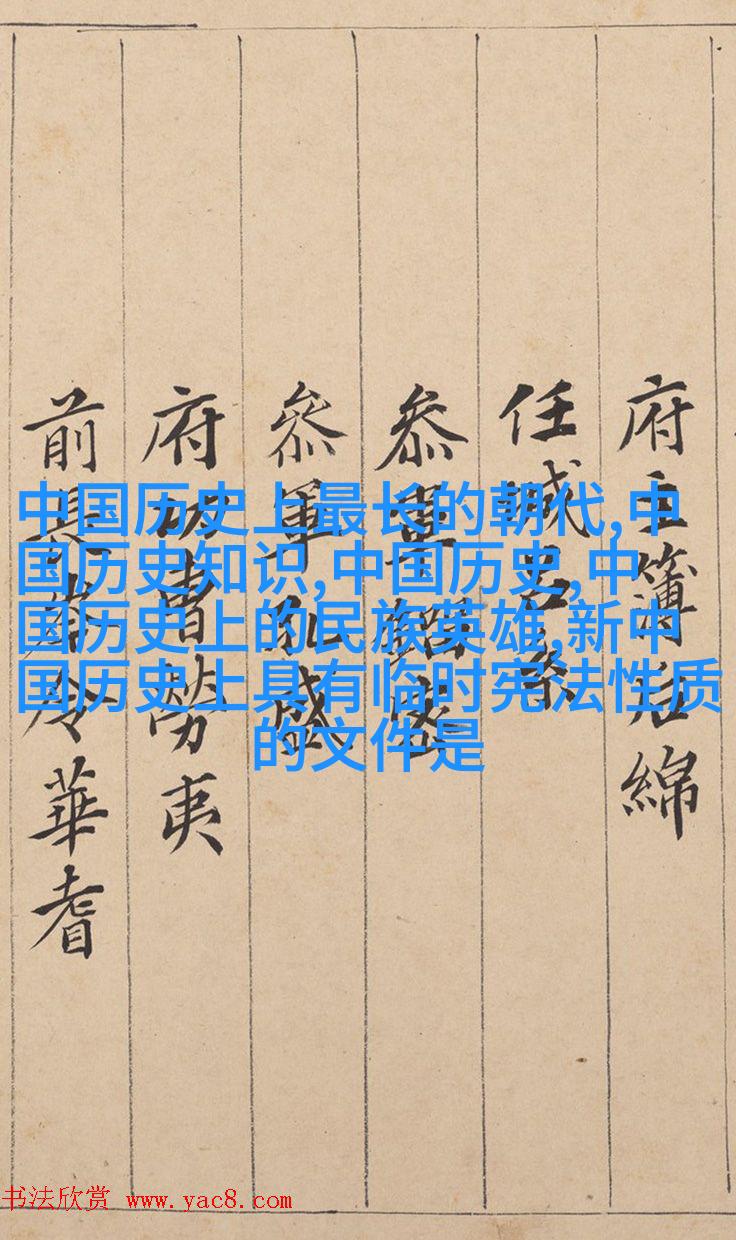 中国历史上最长的朝代,中
国历史知识,中国历史,中
国历史上的民族英雄,新中
国历史上具有临时宪法性质
的文件是
府主簿綿
任城呂系
叅軍
叅軍孔盛
府功曹勞夷
前長岑令華耆
书法欣赏 www.yac8.com